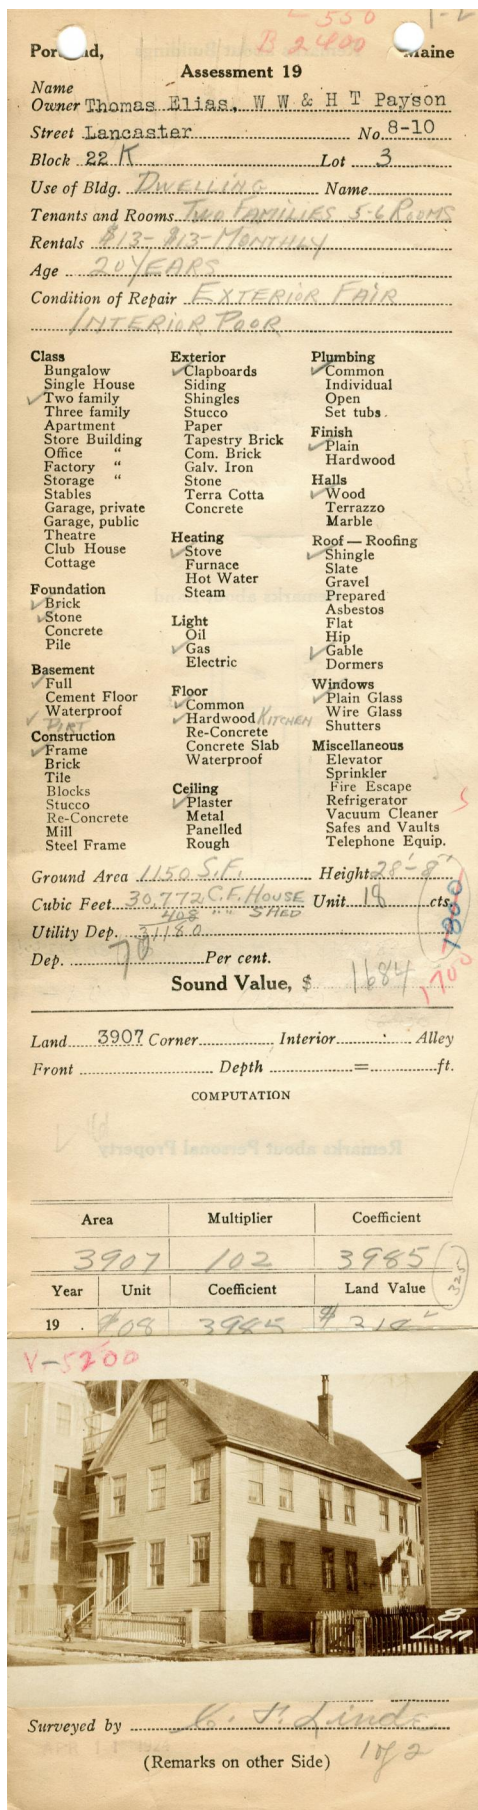 L 550 1-2
B 2400
Portland, Maine
Assessment 19
Name
Owner Thomas Elias, W W & H T Payson
Street Lancaster No. 8-10
Block 22 K Lot 3
Use of Bldg. DWELLING Name
Tenants and Rooms TWO FAMILIES 5-6 ROOMS
Rentals $13- $13- MONTHLY
Age 20 YEARS
Condition of Repair EXTERIOR FAIR
INTERIOR POOR
Class
Bungalow
Single House
✓ Two family
Three family
Apartment
Store Building
Office "
Factory "
Storage "
Stables
Garage, private
Garage, public
Theatre
Club House
Cottage
Foundation
✓ Brick
✓ Stone
Concrete
Pile
Basement
✓ Full
Cement Floor
Waterproof
✓ DIRT
Construction
✓ Frame
Brick
Tile
Blocks
Stucco
Re-Concrete
Mill
Steel Frame
Exterior
✓ Clapboards
Siding
Shingles
Stucco
Paper
Tapestry Brick
Com. Brick
Galv. Iron
Stone
Terra Cotta
Concrete
Heating
✓ Stove
Furnace
Hot Water
Steam
Light
Oil
✓ Gas
Electric
Floor
✓ Common
✓ Hardwood KITCHEN
Re-Concrete
Concrete Slab
Waterproof
Ceiling
✓ Plaster
Metal
Panelled
Rough
Plumbing
✓ Common
Individual
Open
Set tubs.
Finish
✓ Plain
Hardwood
Halls
✓ Wood
Terrazzo
Marble
Roof — Roofing
✓ Shingle
Slate
Gravel
Prepared
Asbestos
Flat
Hip
✓ Gable
Dormers
Windows
✓ Plain Glass
Wire Glass
Shutters
Miscellaneous
Elevator
Sprinkler
Fire Escape
Refrigerator
Vacuum Cleaner
Safes and Vaults
Telephone Equip.
Ground Area 1150 S.F. Height 28'-8"
Cubic Feet 30,772 C.F. HOUSE Unit 18 cts.
408 " " SHED
Utility Dep. 31180
Dep. 70 Per cent. 1800
Sound Value, $ 1684 1700
Land 3907 Corner Interior Alley
Front Depth = ft.
COMPUTATION
Area Multiplier Coefficient
3907 102 3985
Year Unit Coefficient Land Value
325
19 . $08 3985
V-5200
8
Lan
Surveyed by
(Remarks on other Side) 1 of 2